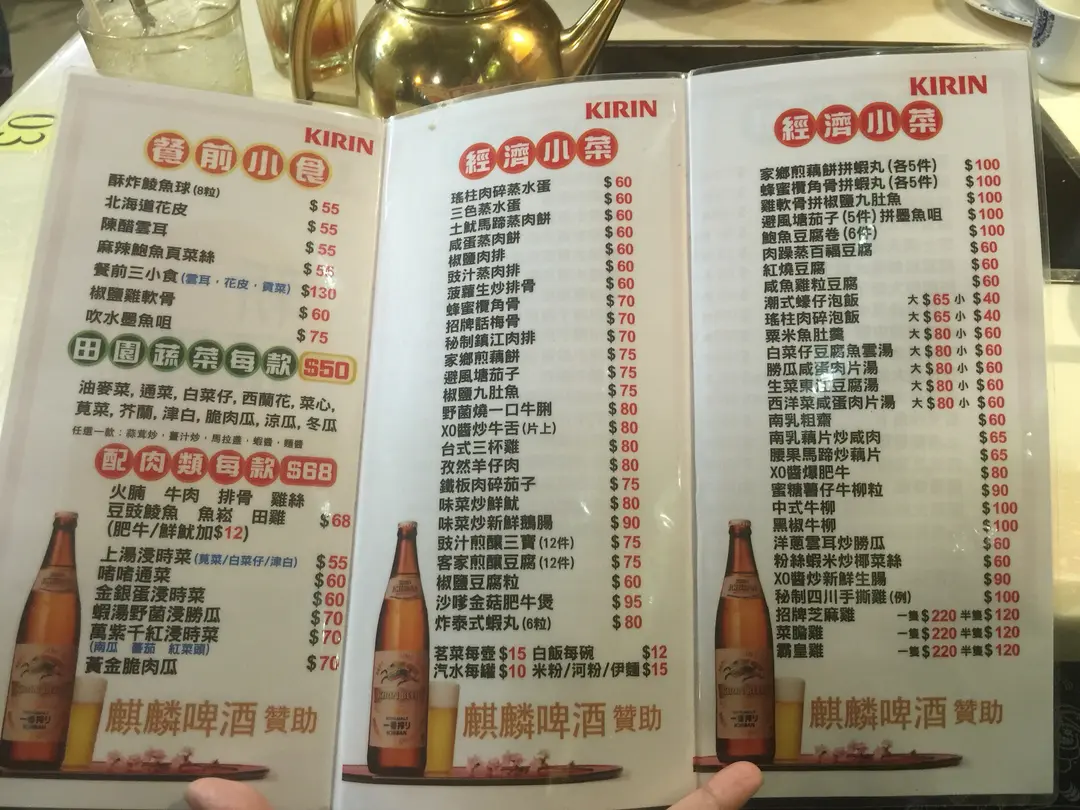 03
KIRIN
餐前小食
酥炸鯪魚球(8粒) $55
北海道花皮 $55
陳醋雲耳 $55
麻辣鮑魚頁菜絲 $55
餐前三小食(雲耳,花皮,貢菜) $130
椒鹽雞軟骨 $60
吹水墨魚咀 $75
田園蔬菜每款 $50
油麥菜, 通菜, 白菜仔, 西蘭花, 菜心,
莧菜, 芥蘭, 津白, 脆肉瓜, 涼瓜, 冬瓜
任選一款:蒜茸炒,薑汁炒,馬拉盞,蝦醬,麵醬
配肉類每款 $68
火腩 牛肉 排骨 雞絲
豆豉鯪魚 魚崧 田雞 $68
(肥牛/鮮魷加$12)
上湯浸時菜(莧菜/白菜仔/津白) $55
啫啫通菜 $60
金銀蛋浸時菜 $60
蝦湯野菌浸勝瓜 $70
萬紫千紅浸時菜 $70
(南瓜 蕃茄 紅菜頭)
黃金脆肉瓜 $70
麒麟啤酒 贊助
KIRIN
經濟小菜
瑤柱肉碎蒸水蛋 $60
三色蒸水蛋 $60
土魷馬蹄蒸肉餅 $60
咸蛋蒸肉餅 $60
椒鹽肉排 $60
豉汁蒸肉排 $60
菠蘿生炒排骨 $60
蜂蜜欖角骨 $70
招牌話梅骨 $70
秘制鎮江肉排 $70
家鄉煎藕餅 $75
避風塘茄子 $75
椒鹽九肚魚 $75
野菌燒一口牛脷 $80
XO醬炒牛舌(片上) $80
台式三杯雞 $80
孜然羊仔肉 $80
鐵板肉碎茄子 $75
味菜炒鮮魷 $80
味菜炒新鮮鵝腸 $90
豉汁煎釀三寶(12件) $75
客家煎釀豆腐(12件) $75
椒鹽豆腐粒 $60
沙嗲金菇肥牛煲 $95
炸泰式蝦丸(6粒) $80
茗菜每壺 $15 白飯每碗 $12
汽水每罐 $10 米粉/河粉/伊麵 $15
麒麟啤酒 贊助
KIRIN
經濟小菜
家鄉煎藕餅拼蝦丸(各5件) $100
蜂蜜欖角骨拼蝦丸(各5件) $100
雞軟骨拼椒鹽九肚魚 $100
避風塘茄子(5件)拼墨魚咀 $100
鮑魚豆腐卷(6件) $100
肉躁蒸百福豆腐 $60
紅燒豆腐 $60
咸魚雞粒豆腐 $60
潮式蠔仔泡飯 大$65 小$40
瑤柱肉碎泡飯 大$65 小$40
粟米魚肚羹 大$80 小$60
白菜仔豆腐魚雲湯 大$80 小$60
勝瓜咸蛋肉片湯 大$80 小$60
生菜東江豆腐湯 大$80 小$60
西洋菜咸蛋肉片湯 大$80 小$60
南乳粗齋 $60
南乳藕片炒咸肉 $65
腰果馬蹄炒藕片 $65
XO醬爆肥牛 $80
蜜糖薯仔牛柳粒 $90
中式牛柳 $100
黑椒牛柳 $100
洋蔥雲耳炒勝瓜 $60
粉絲蝦米炒椰菜絲 $60
XO醬炒新鮮生腸 $90
秘制四川手撕雞(例) $100
招牌芝麻雞 一隻$220 半隻$120
菜膽雞 一隻$220 半隻$120
霸皇雞 一隻$220 半隻$120
麒麟啤酒 贊助